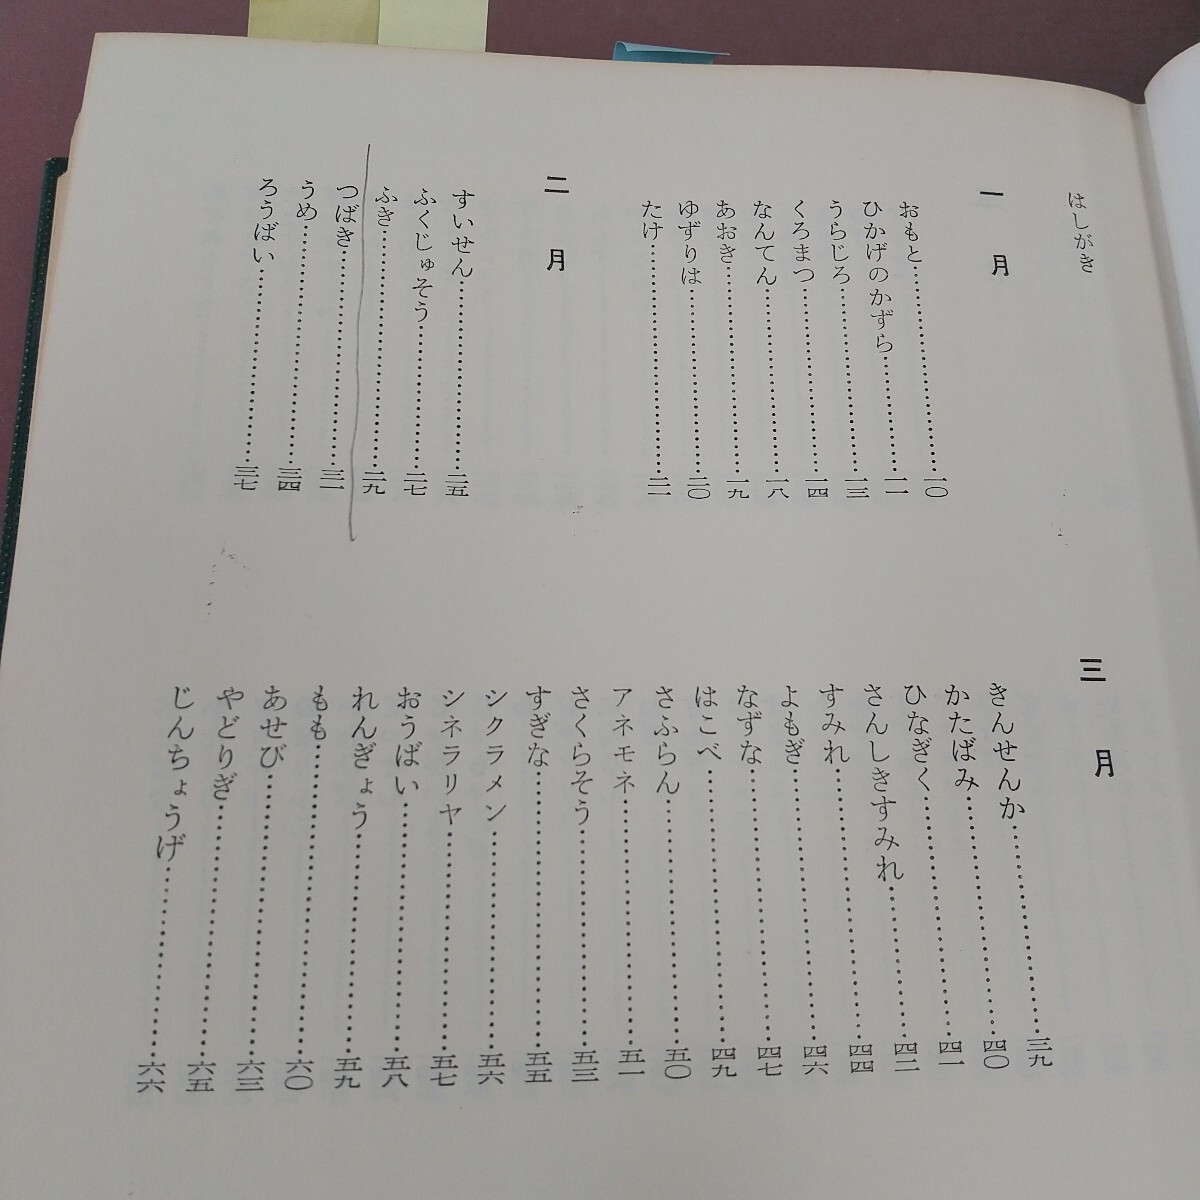 はしがき
一月
おもと……一〇
ひかげのかずら……一一
うらじろ……一三
くろまつ……一四
なんてん……一八
あおき……一九
ゆずりは……二〇
たけ……二一
二月
すいせん……二五
ふくじゅそう……二七
ふき……二九
つばき……三一
うめ……三四
ろうばい……三七
三月
きんせんか……三九
かたばみ……四〇
ひなぎく……四一
さんしきすみれ……四二
すみれ……四四
よもぎ……四六
なずな……四七
はこべ……四九
さふらん……五〇
アネモネ……五一
さくらそう……五三
すぎな……五五
シクラメン……五六
シネラリヤ……五七
おうばい……五八
れんぎょう……五九
もも……六〇
あせび……六三
やどりぎ……六五
じんちょうげ……六六